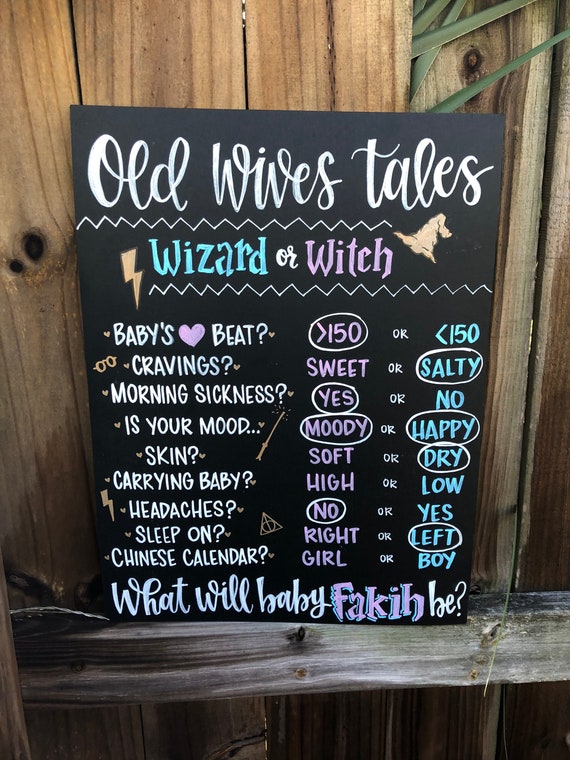 Old Wives tales
Wizard or Witch
BABY'S BEAT? >150 OR <150
CRAVINGS? SWEET OR SALTY
MORNING SICKNESS? YES OR NO
IS YOUR MOOD... MOODY OR HAPPY
SKIN? SOFT OR DRY
CARRYING BABY? HIGH OR LOW
HEADACHES? NO OR YES
SLEEP ON? RIGHT OR LEFT
CHINESE CALENDAR? GIRL OR BOY
What will baby Fakih be?